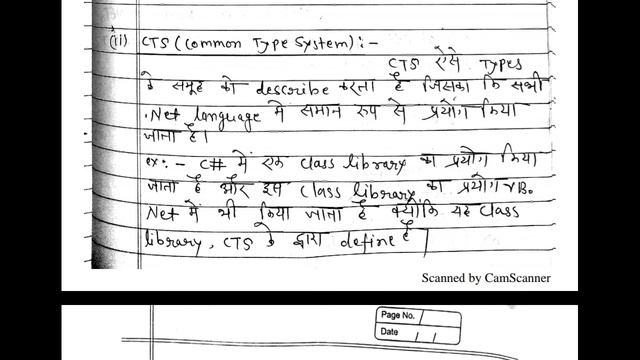 (ii) CTS (Common Type System) :-
CTS ऐसे Types
के समूह को describe करता है जिसका कि सभी
.Net language में समान रूप से प्रयोग किया
जाता है।
ex:- C# में एक class library का प्रयोग किया
जाता है और इस class library का प्रयोग VB.
Net में भी किया जाता है क्योंकि यह class
library, CTS के द्वारा define है।
Scanned by CamScanner
Page No.
Date